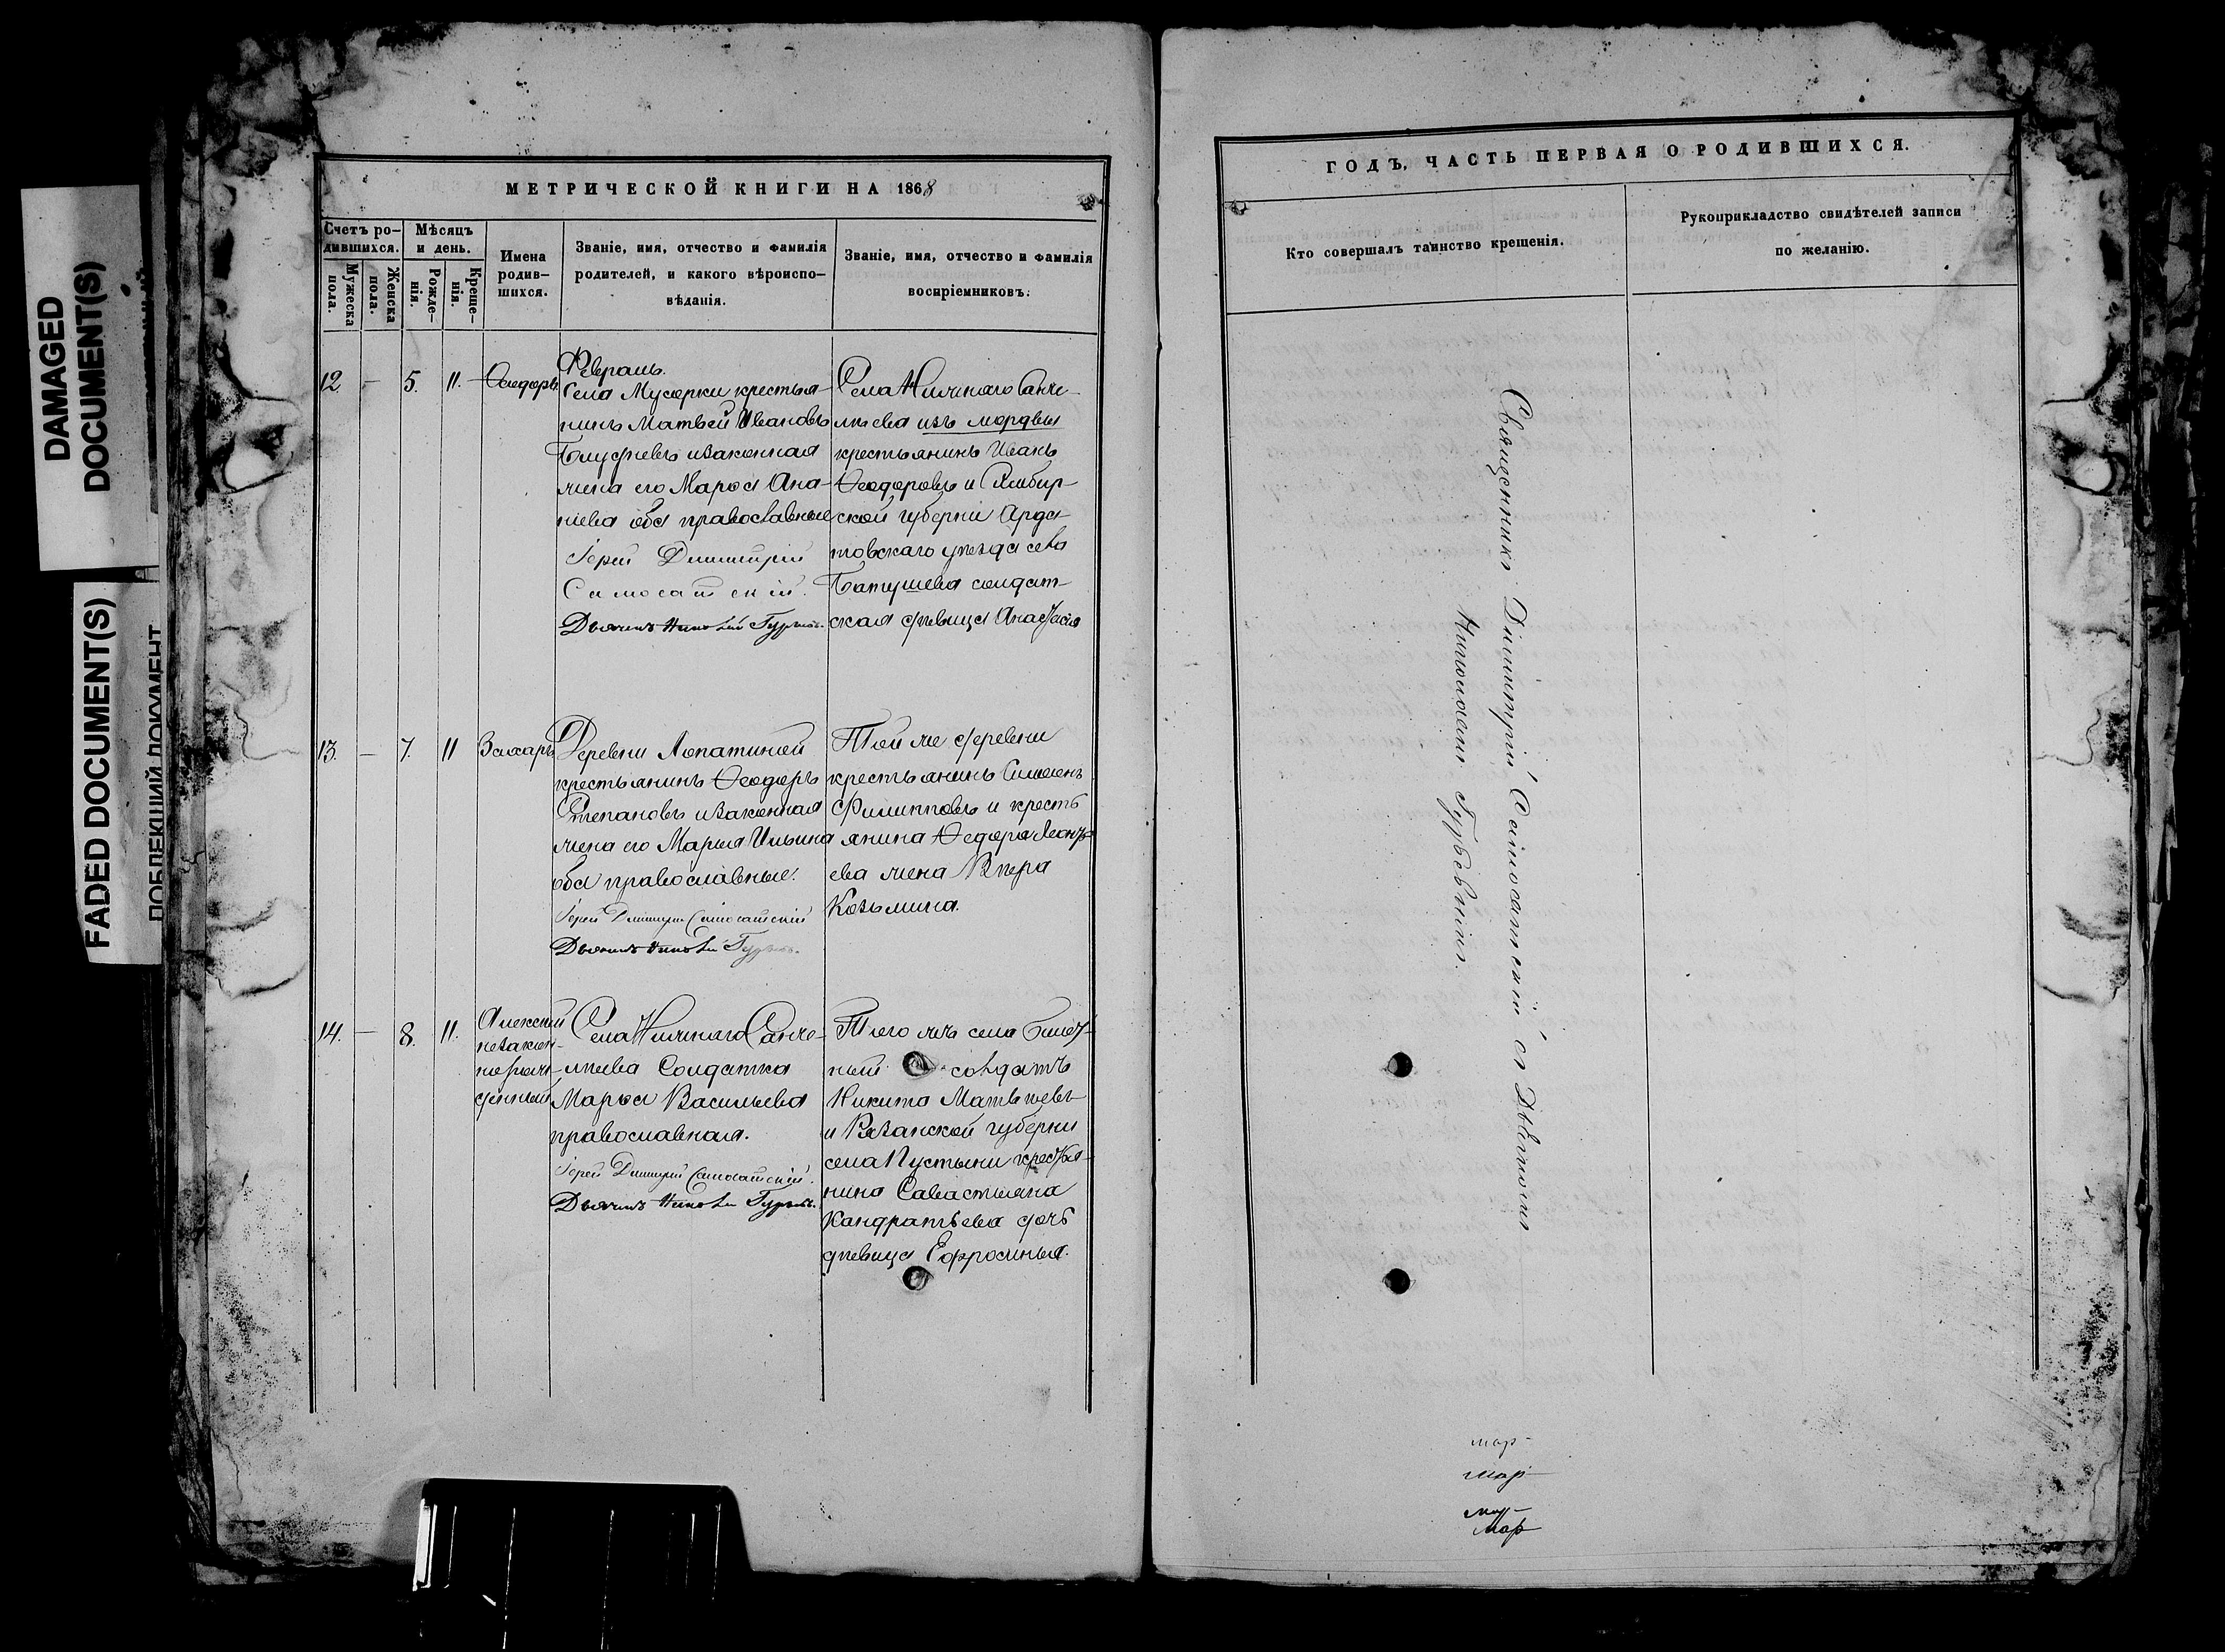 DAMAGED
DOCUMENT(S)
FADED DOCUMENT(S)
МЕТРИЧЕСКОЙ КНИГИ НА 1868
Счетъ ро-
дившихся.
Мужеска
пола.
Женска
пола.
Мѣсяцъ
и день.
Рожде-
нія.
Креще-
нія.
Имена
родив-
шихся.
Званіе, имя, отчество и фамилія
родителей, и какого вѣроиспо-
вѣданія.
Званіе, имя, отчество и фамилія
воспріемниковъ.
Февраль.
12. - 5. 11. Ѳеодоръ
Села Мусорки крестья-
нинъ Матвей Ивановъ
и законная
жена его Марья Ана-
ніева оба православные
Іерей Димитрій
Самосатскій.
Дьячекъ Николай Гурьевъ.
Села Нижняго Санче-
лѣева изъ мордвы
крестьянинъ Иванъ
Ѳеодоровъ и Симбир-
ской губерни Арда-
товскаго уѣзда села
Батушева солдат-
ская дѣвица Анастасія
13. - 7. 11 Захаръ
Деревни Лопатиной
крестьянинъ Ѳеодоръ
Степановъ и законная
жена его Марья Ильина
оба православные.
Іерей Димитрій Самосатскій
Дьячекъ Николай Гурьевъ.
Той же деревни
крестьянинъ Симеонъ
Филипповъ и кресть
янина Ѳедора
ева жена Вѣра
Козьмина.
14. - 8. 11. Алексѣй
незакон-
норож-
денный
Села Нижняго Санче-
лѣева Солдатка
Марья Васильева
православная.
Іерей Димитрій Самосатскій.
Дьячекъ Николай Гурьевъ.
Того же села билет-
ный солдатъ
Никита Матвѣевъ
и Рязанской губерни
села Пустыни крестья-
нина Савастьяна
Кандратьева дочь
дѣвица Ефросинья.
ГОДЪ, ЧАСТЬ ПЕРВАЯ О РОДИВШИХСЯ.
Кто совершалъ таинство крещенія.
Рукоприкладство свидѣтелей записи
по желанію.
Священникъ Димитрій Самосатскій съ Дьячкомъ
Николаемъ Гурьевымъ.
мар-
мар-
мар